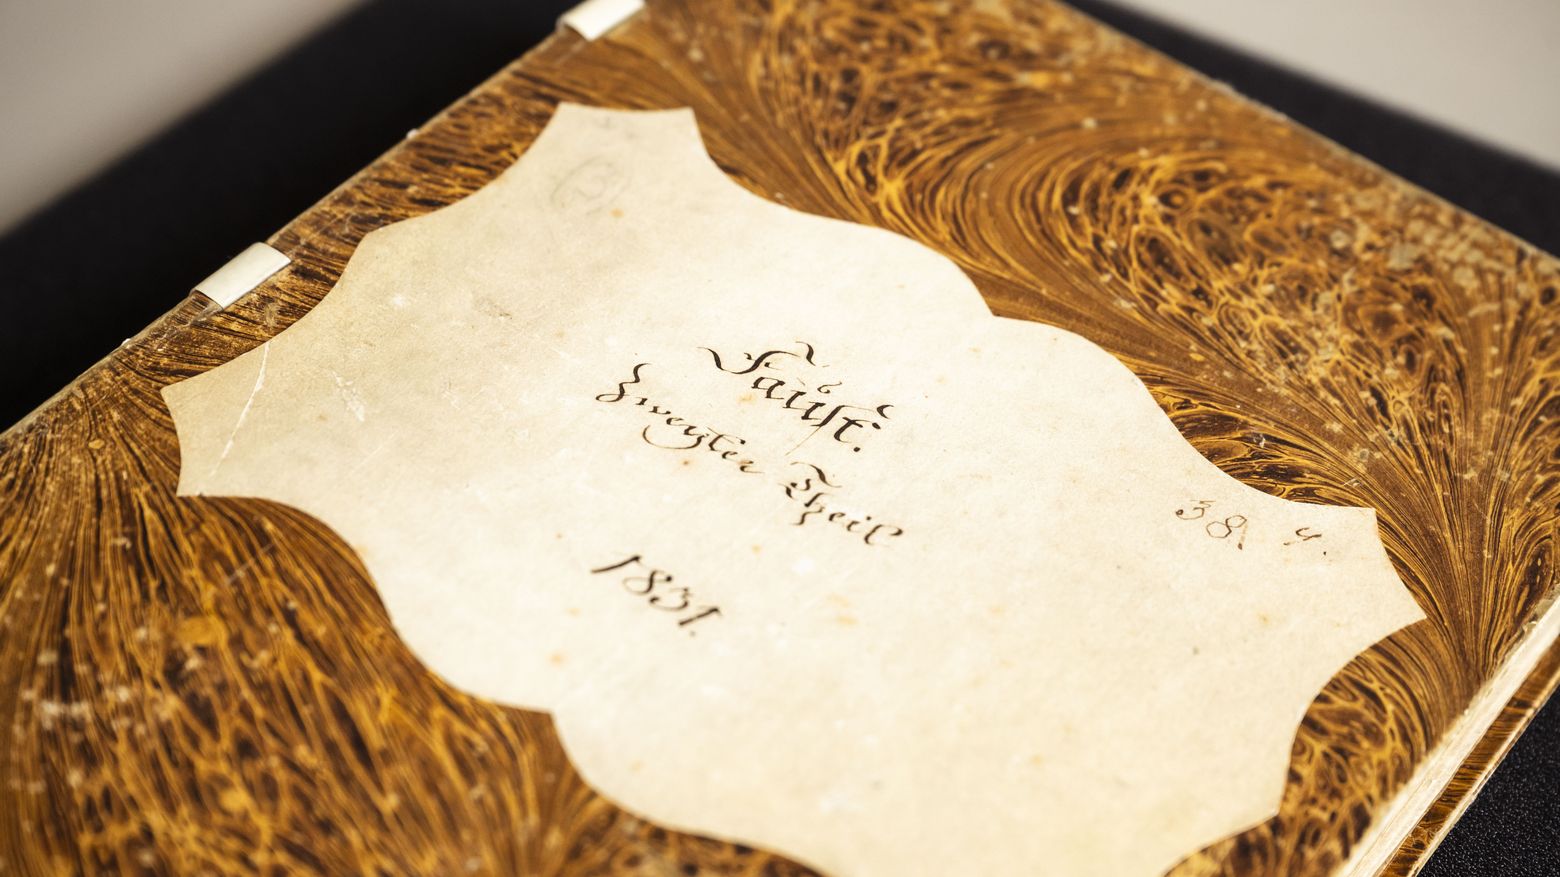 Faust.
Zweyter Theil
1831.
38.